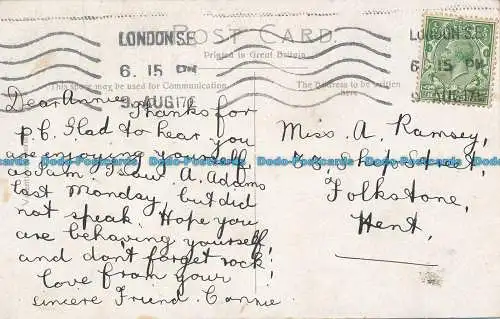 POST CARD
Printed in Great Britain
This space may be used for Communication
The Address to be written here
LONDON S.E
6. 15 PM
9 AUG 17
LONDON S.E
6. 15 PM
AUG 17
Dear Annie Thanks for
p.c. Glad to hear you
are enjoying yourself
as I am. I saw A. Adams
last Monday, but did
not speak. Hope you
are behaving yourself
and don't forget rock!
Love from your
sincere Friend Connie
Miss A. Ramsey,
73, Ship Street,
Folkstone,
Kent,
Dobs-Postcards